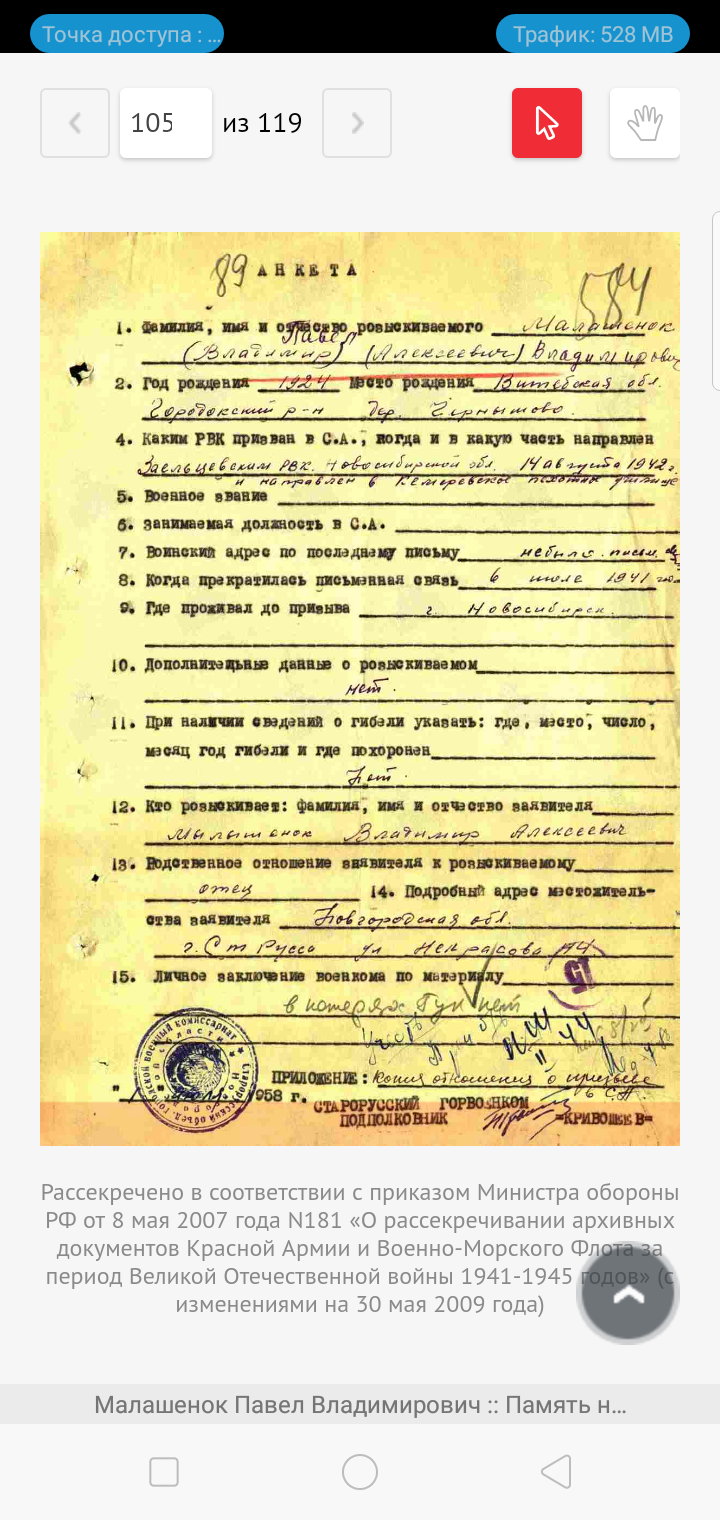 Точка доступа : ...
Трафик: 528 MB
105 из 119
89 АНКЕТА
584
1. Фамилия, имя и отчество розыскиваемого Малашенок
Павел
(Владимир) (Алексеевич) Владимирович
2. Год рождения 1924 Место рождения Витебская обл.
Городокский р-н дер. Чернышово.
4. Каким РВК призван в С.А., когда и в какую часть направлен
Заельцевским РВК. Новосибирской обл. 14 августа 1942 г.
и направлен в Кемеровское пехотное училище
5. Военное звание
6. Занимаемая должность в С.А.
7. Воинский адрес по последнему письму не было. письм.
8. Когда прекратилась письменная связь в июле 1941 год
9. Где проживал до призыва г. Новосибирск.
10. Дополнительные данные о розыскиваемом
нет.
11. При наличии сведений о гибели указать: где, место, число,
месяц год гибели и где похоронен
Нет.
12. Кто розыскивает: фамилия, имя и отчество заявителя
Малашенок Владимир Алексеевич
13. Родственное отношение заявителя к розыскиваемому
отец 14. Подробный адрес местожитель-
ства заявителя Новгородская обл.
г. Ст Русса ул Некрасова
15. Личное заключение военкома по материалу
в потерях ГУК нет
ПРИЛОЖЕНИЕ: Копия отношения о призыве
в С.А.
1958 г.
СТАРОРУССКИЙ ГОРВОЕНКОМ
ПОДПОЛКОВНИК =КРИВОШЕЕВ=
Рассекречено в соответствии с приказом Министра обороны
РФ от 8 мая 2007 года N181 «О рассекречивании архивных
документов Красной Армии и Военно-Морского Флота за
период Великой Отечественной войны 1941-1945 годов» (с
изменениями на 30 мая 2009 года)
Малашенок Павел Владимирович :: Память н...